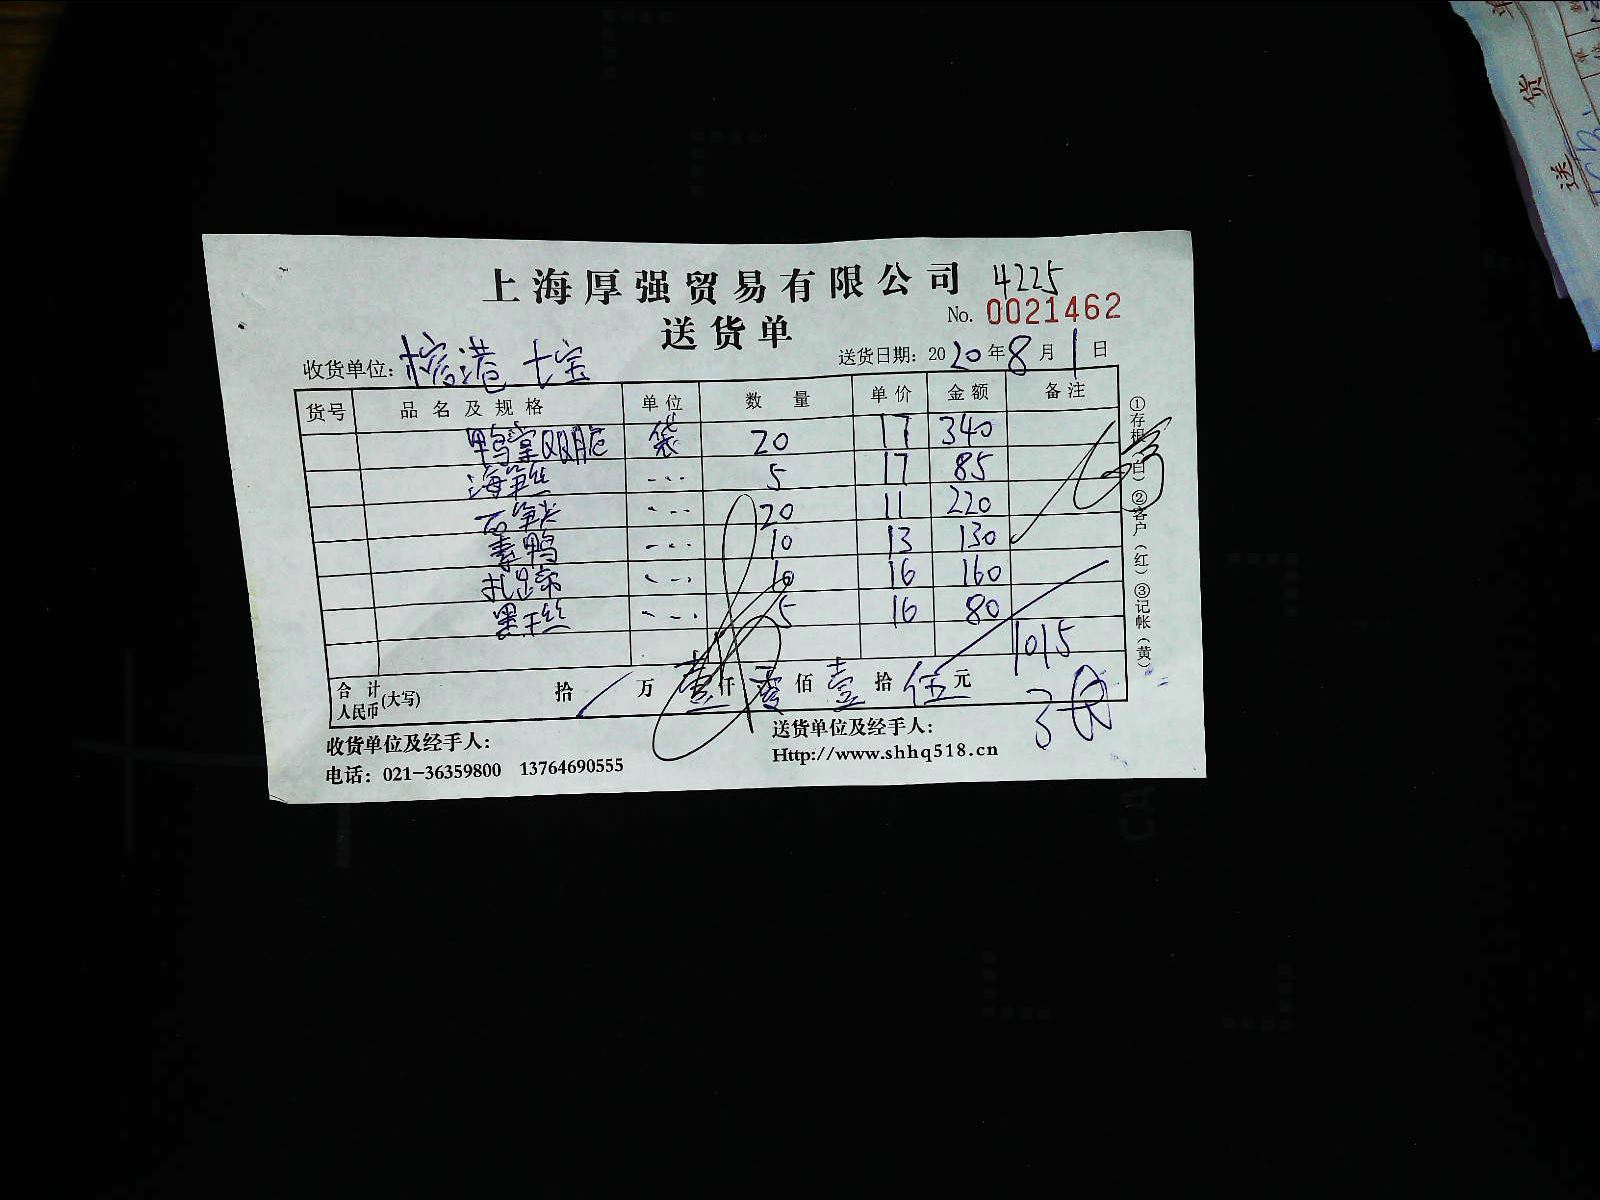 上海厚强贸易有限公司 4225
送货单 No. 0021462
收货单位: 榕港 七宝 送货日期: 2020年8月1日
货号 品名及规格 单位 数量 单价 金额 备注
鸭掌双脆 袋 20 17 340
海笋丝 ... 5 17 85
石笋尖 ... 20 11 220
素鸭 ... 10 13 130
扎蹄 ... 10 16 160
墨干丝 ... 5 16 80
1015
合计人民币(大写) 拾 / 万 壹仟零佰壹拾伍元
收货单位及经手人: 送货单位及经手人:
电话: 021-36359800 13764690555 Http://www.shhq518.cn
①存根(白)②客户(红)③记帐(黄)
送货单